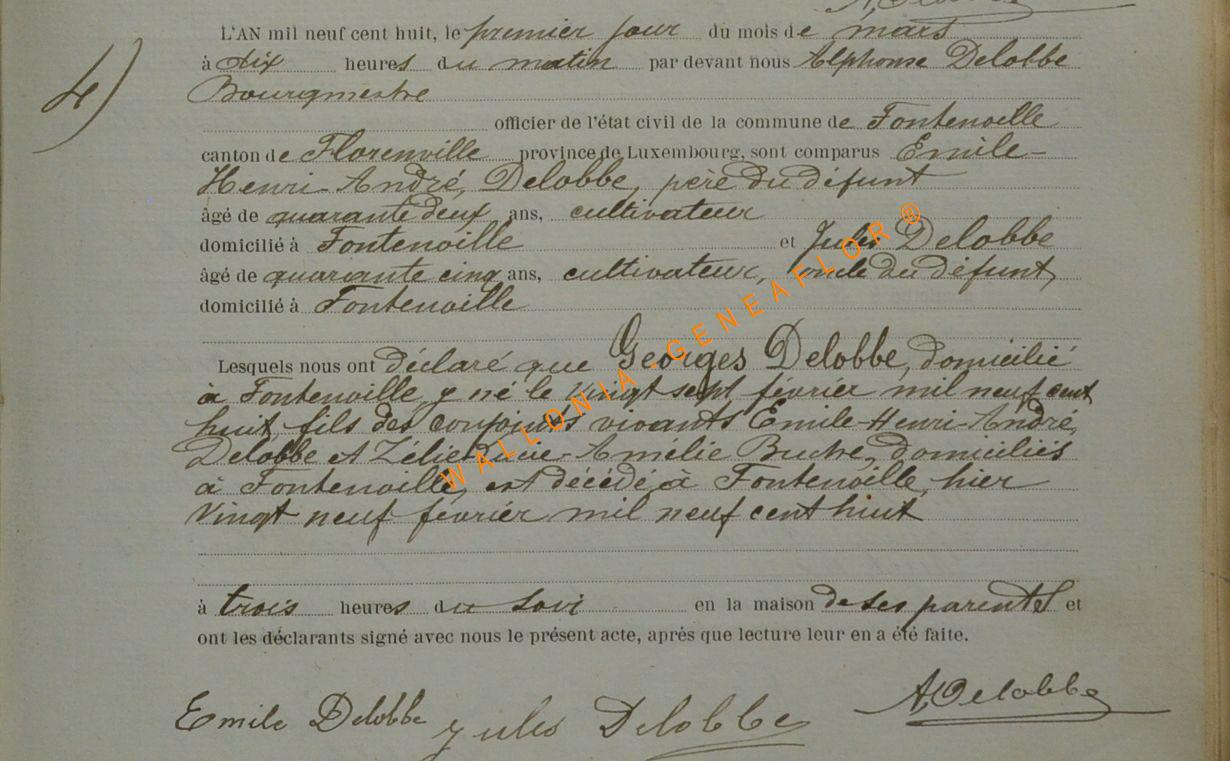 A. Delobbe
L'AN mil neuf cent huit, le premier jour du mois de mars
à dix heures du matin par devant nous Alphonse Delobbe
Bourgmestre
4) officier de l'état civil de la commune de Fontenoille
canton de Florenville province de Luxembourg, sont comparus Emile-
Henri-André, Delobbe, père du défunt
âgé de quarante deux ans, cultivateur
domicilié à Fontenoille et Jules Delobbe
âgé de quarante cinq ans, cultivateur, oncle du défunt,
domicilié à Fontenoille
Lesquels nous ont déclaré que Georges Delobbe, domicilié
à Fontenoille, y né le vingt sept février mil neuf cent
huit, fils des conjoints vivants Emile-Henri-André,
Delobbe et Zélie Amélie Buchet, domiciliés
à Fontenoille, est décédé à Fontenoille, hier
vingt neuf février mil neuf cent huit
à trois heures du soir en la maison de ses parents et
ont les déclarants signé avec nous le présent acte, après que lecture leur en a été faite.
Emile Delobbe Jules Delobbe A. Delobbe
WALLONIA-GENEAFLOR®